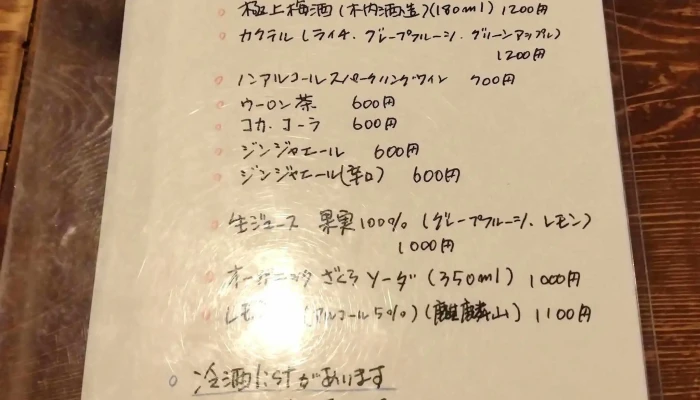 極上梅酒(木内酒造)(180ml) 1200円
カクテル(ライチ、グレープフルーツ、グリーンアップル)
1200円
ノンアルコールスパークリングワイン 700円
ウーロン茶 600円
コカ、コーラ 600円
ジンジャエール 600円
ジンジャエール(辛口) 600円
生ジュース 果実100%(グレープフルーツ、レモン)
1000円
オーガニック ざくろソーダ(350ml) 1000円
レモ (アルコール5%)(麒麟山) 1100円
冷酒listがあります